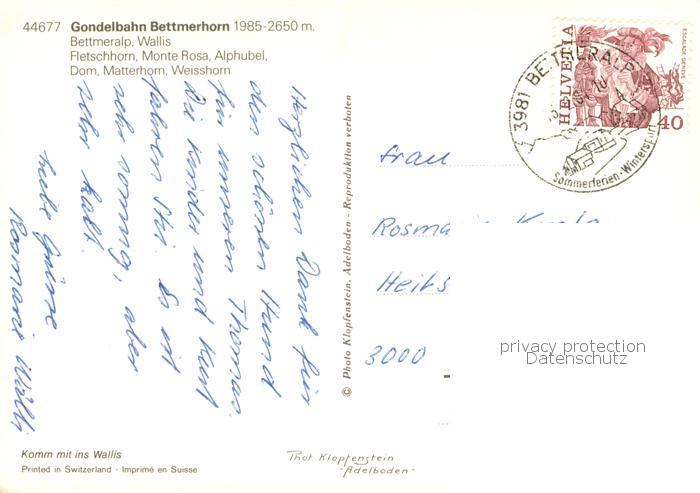 44677 Gondelbahn Bettmerhorn 1985-2650 m.
Bettmeralp, Wallis
Fletschhorn, Monte Rosa, Alphubel,
Dom, Matterhorn, Weisshorn
Herzlichen Dank für
den schönen Hund
für unseren Thomas.
Die Kinder und Kurt
fahren Ski. Es ist
sehr sonnig, aber
sehr kalt.
Liebe Grüsse
Rosmarie
© Photo Klopfenstein, Adelboden - Reproduktion verboten
HELVETIA
ESCALADE GENÈVE
40
3981 BETTMERALP
Sommerferien-Wintersport
Frau
Rosma
Heits
3000
privacy protection
Datenschutz
Komm mit ins Wallis
Printed in Switzerland - Imprimé en Suisse
Phot. Klopfenstein
-Adelboden-